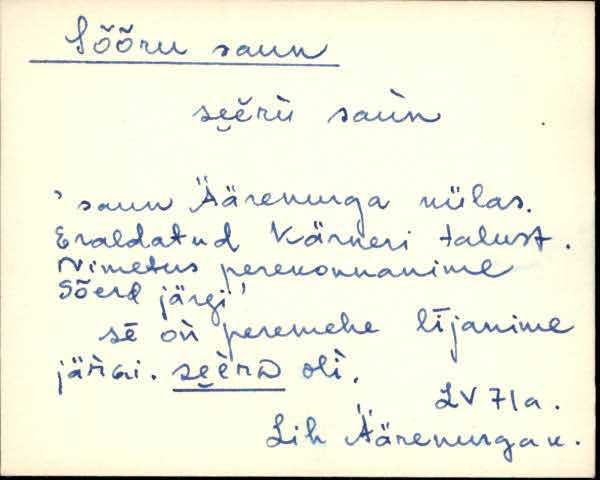 Sõõru saun
se̮e̮rù saùn
'saun Äärenurga külas.
Eraldatud Kärneri talust.
Nimetus perekonnanime
Sõerd järgi'
sē oǹ peremehe lījanime
järǵi. se̮e̮rD oĺi.
LV 71a.
Lih Äärenurga k.